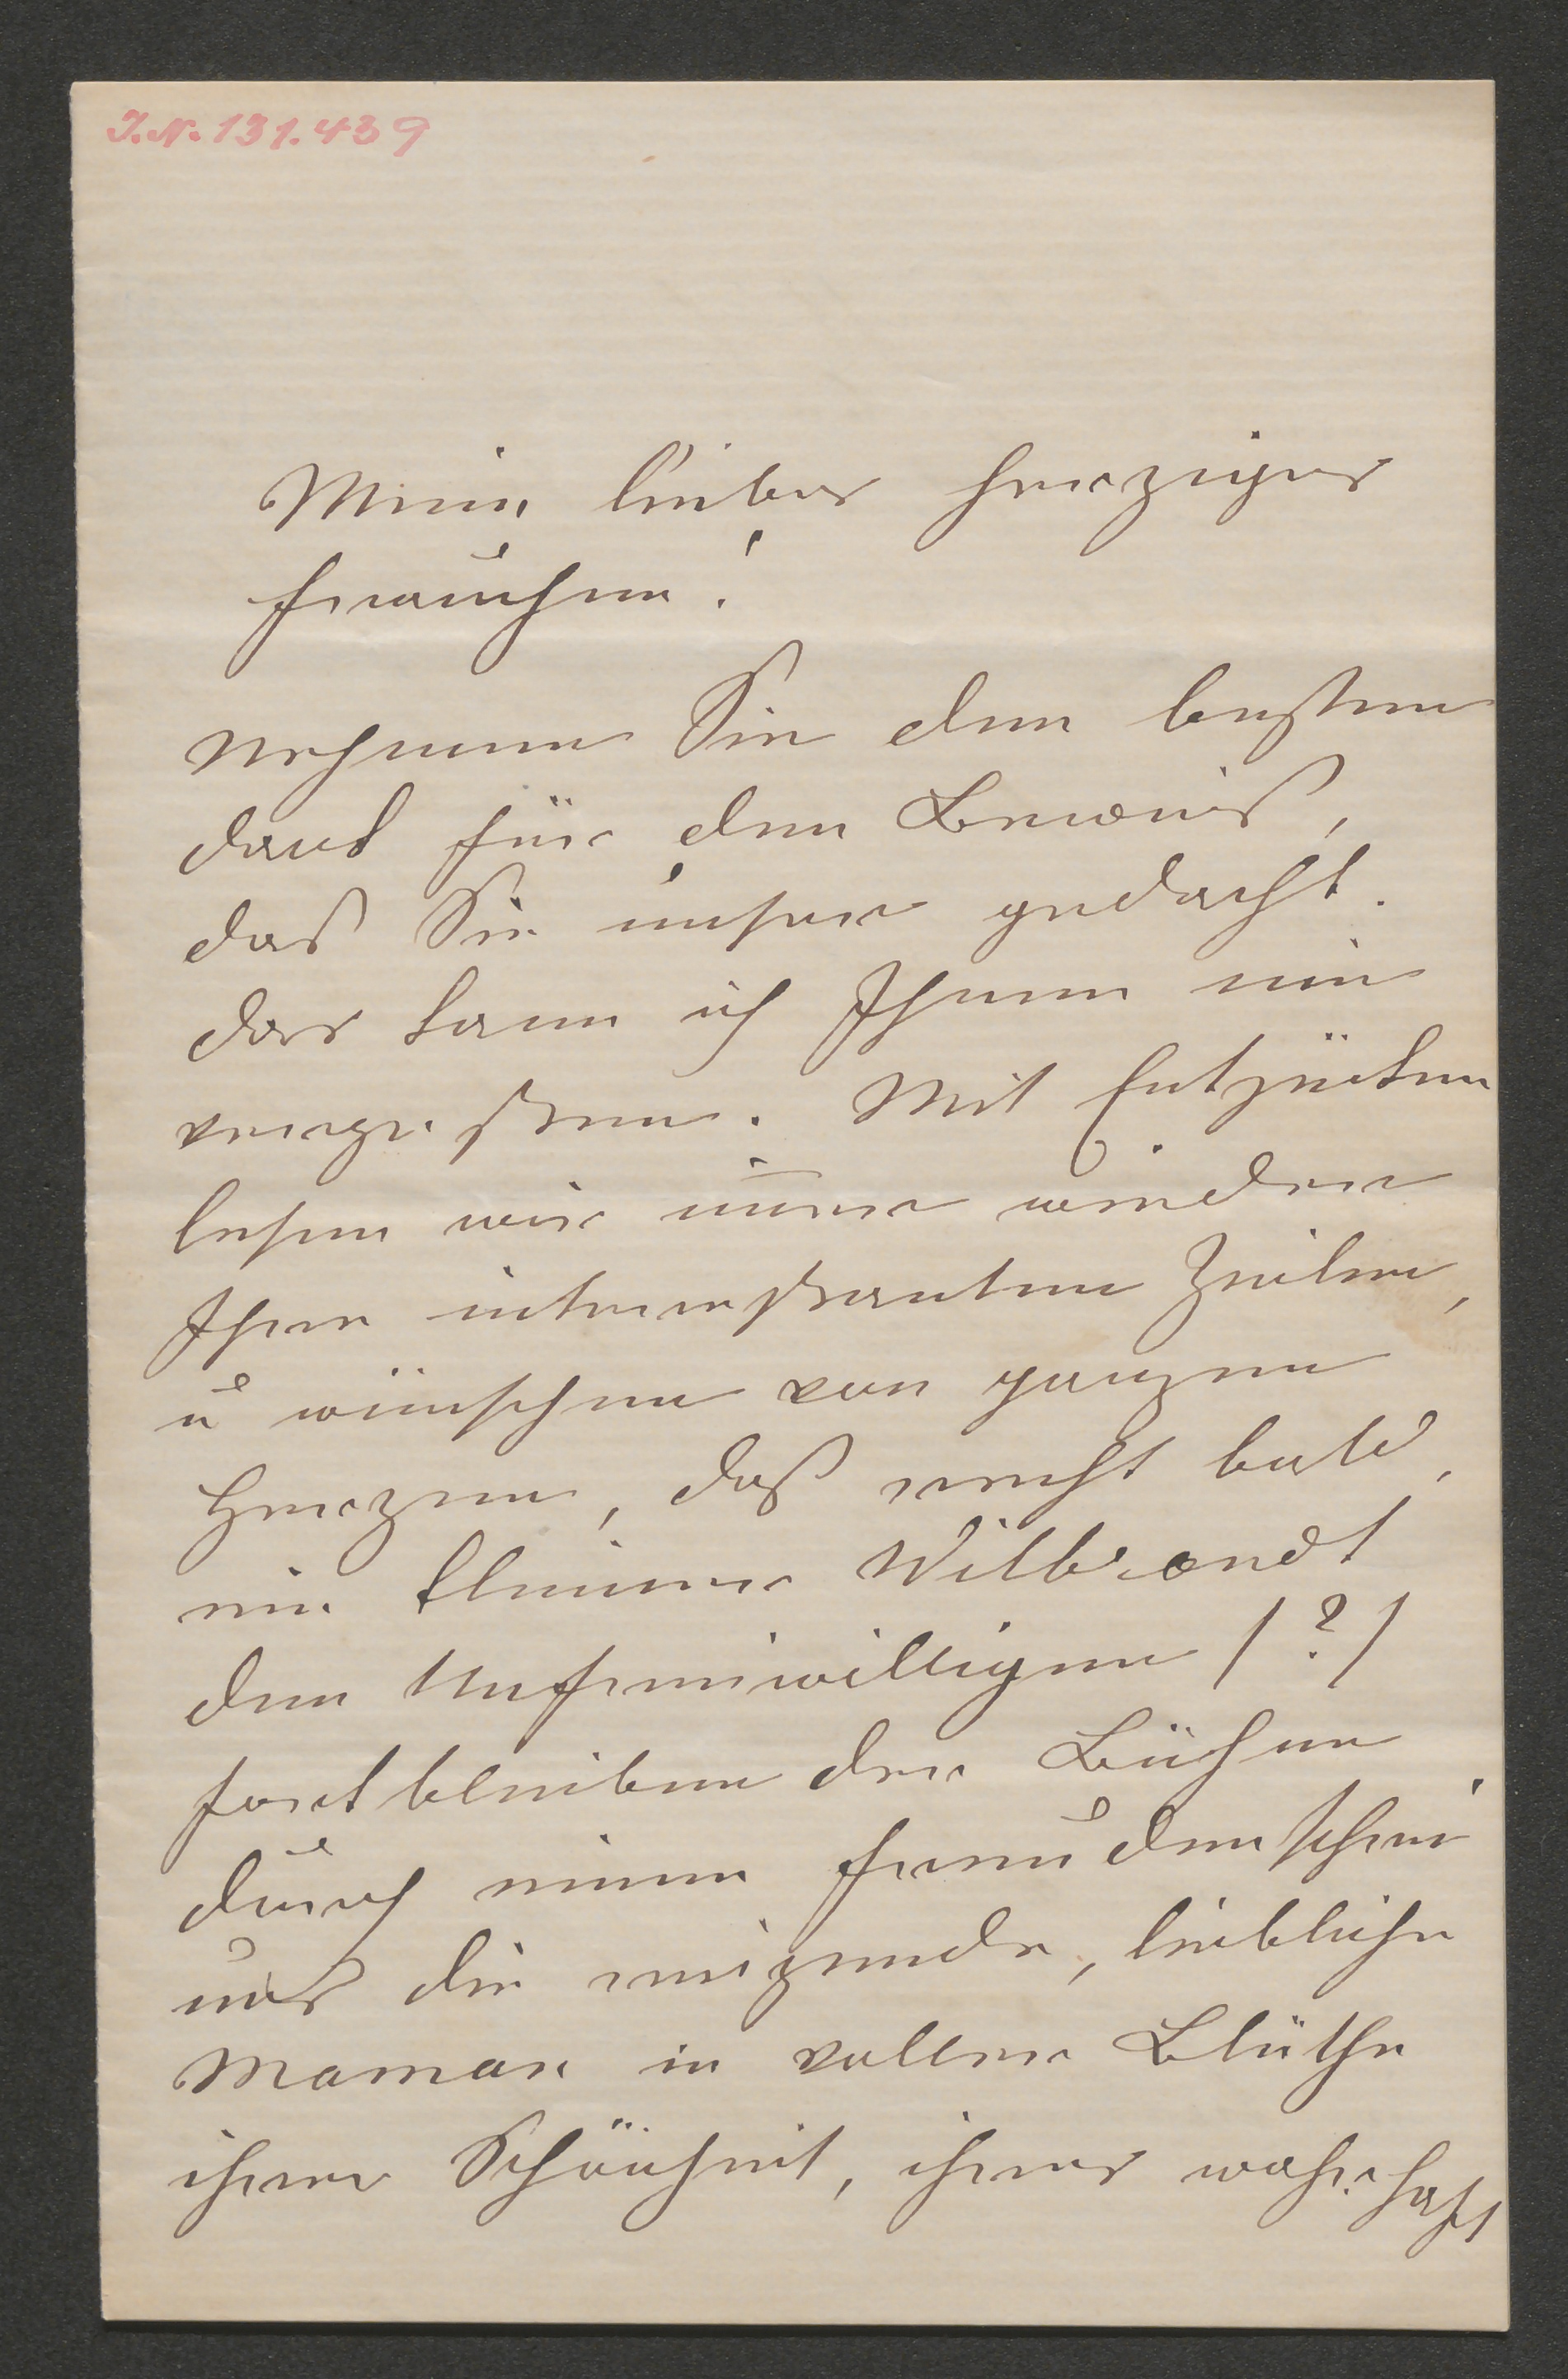 I.N. 131.439
Mein liebes herziges
Frauchen!
Nehmen Sie den besten
Dank für den Beweis,
daß Sie unser gedacht.
Das kann ich Ihnen nie
vergeßen. Mit Entzücken
lesen wir im̅er wieder
Ihre intereßanten Zeilen,
u wünschen von ganzen
Herzen, daß recht bald,
ein kleiner Wilbrandt
den Unfreiwilligen /?/
fortbleiben der Bühne
durch einen Freudenschrei
uns die reizende, liebliche
Maman in voller Blüthe
ihrer Schönheit, ihres wahrhaft